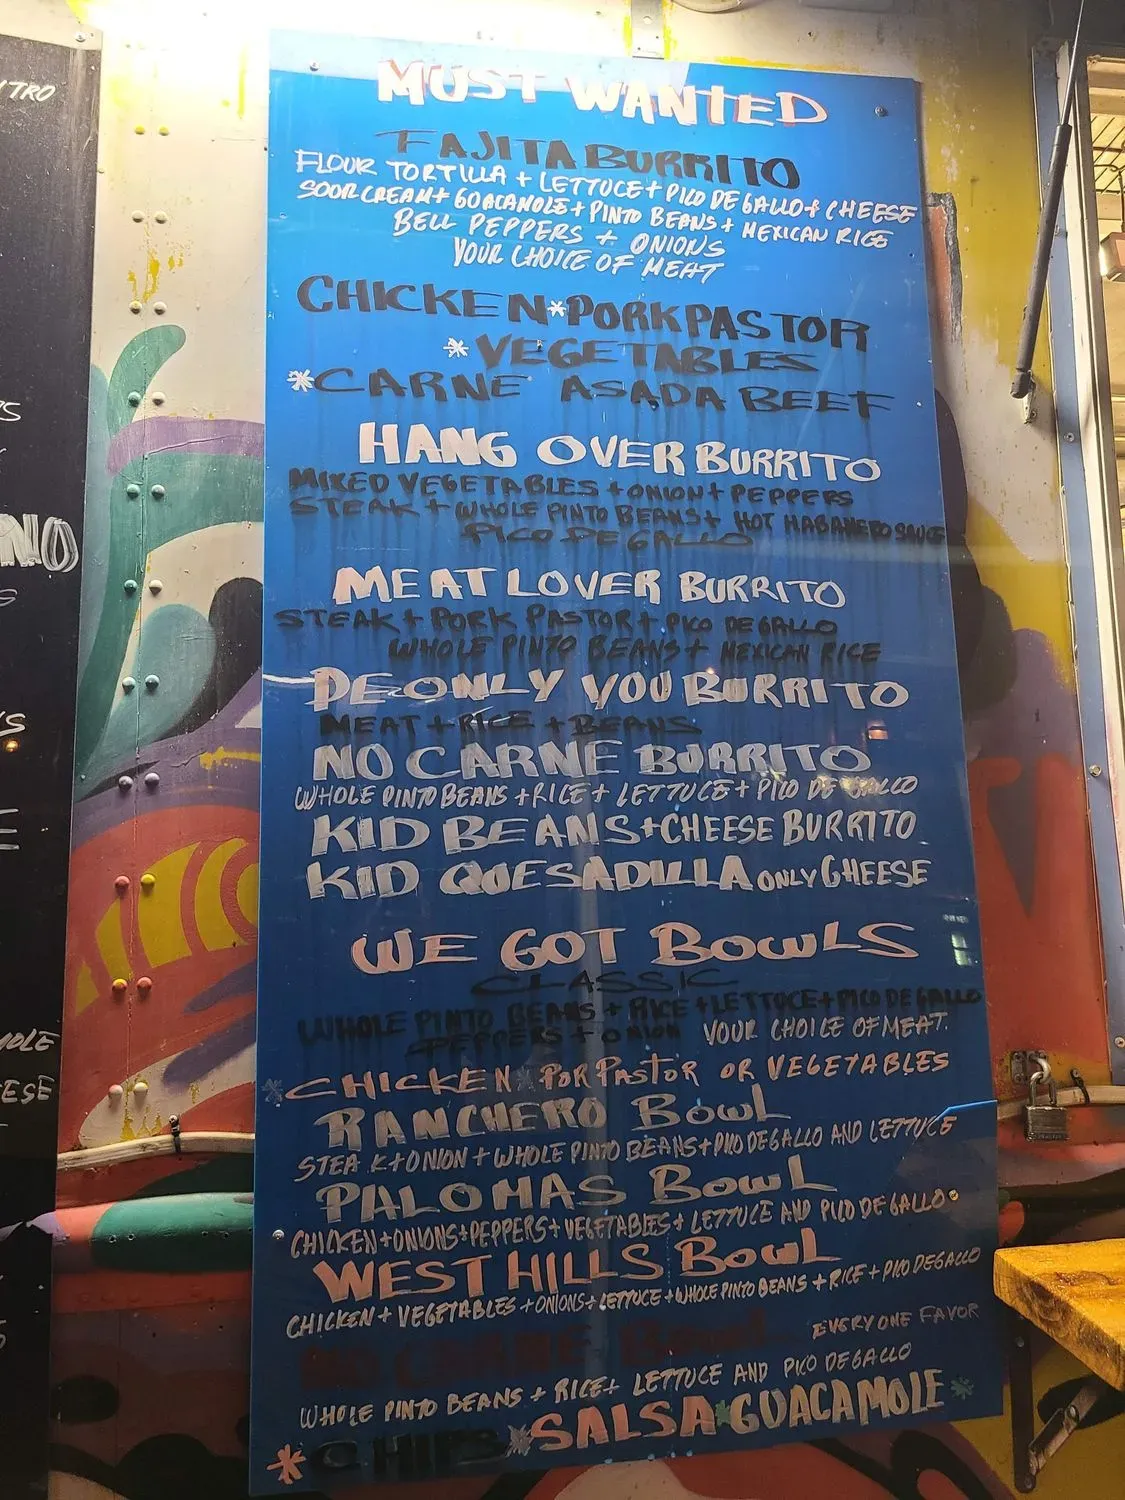 TRO
S
NO
S
MUST WANTED
FAJITA BURRITO
FLOUR TORTILLA + LETTUCE + PICO DE GALLO + CHEESE
SOUR CREAM + GOACAMOLE + PINTO BEANS + MEXICAN RICE
BELL PEPPERS + ONIONS
YOUR CHOICE OF MEAT
CHICKEN * PORK PASTOR
* VEGETABLES
* CARNE ASADA BEEF
HANG OVER BURRITO
MIXED VEGETABLES + ONION + PEPPERS
STEAK + WHOLE PINTO BEANS + HOT HABANERO SAUCE
PICO DE GALLO
MEAT LOVER BURRITO
STEAK + PORK PASTOR + PICO DE GALLO
WHOLE PINTO BEANS + MEXICAN RICE
DE ONLY YOU BURRITO
MEAT + RICE + BEANS
NO CARNE BURRITO
WHOLE PINTO BEANS + RICE + LETTUCE + PICO DE GALLO
KID BEANS + CHEESE BURRITO
KID QUESADILLA ONLY CHEESE
WE GOT BOWLS
CLASSIC
WHOLE PINTO BEANS + RICE + LETTUCE + PICO DE GALLO
PEPPERS + ONION YOUR CHOICE OF MEAT.
* CHICKEN * POR PASTOR OR VEGETABLES
RANCHERO BOWL
STEAK + ONION + WHOLE PINTO BEANS + PICO DE GALLO AND LETTUCE
PALOMAS BOWL
CHICKEN + ONIONS + PEPPERS + VEGETABLES + LETTUCE AND PICO DE GALLO
WEST HILLS BOWL
CHICKEN + VEGETABLES + ONIONS + LETTUCE + WHOLE PINTO BEANS + RICE + PICO DE GALLO
NO CARNE BOWL EVERYONE FAVOR
WHOLE PINTO BEANS + RICE + LETTUCE AND PICO DE GALLO
* CHIPS * SALSA * GUACAMOLE *